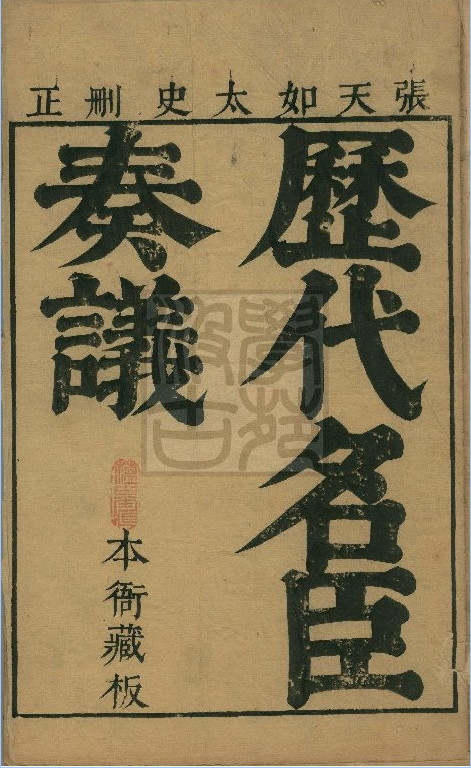 張天如太史刪正
歷代名臣
奏議
本衙藏板